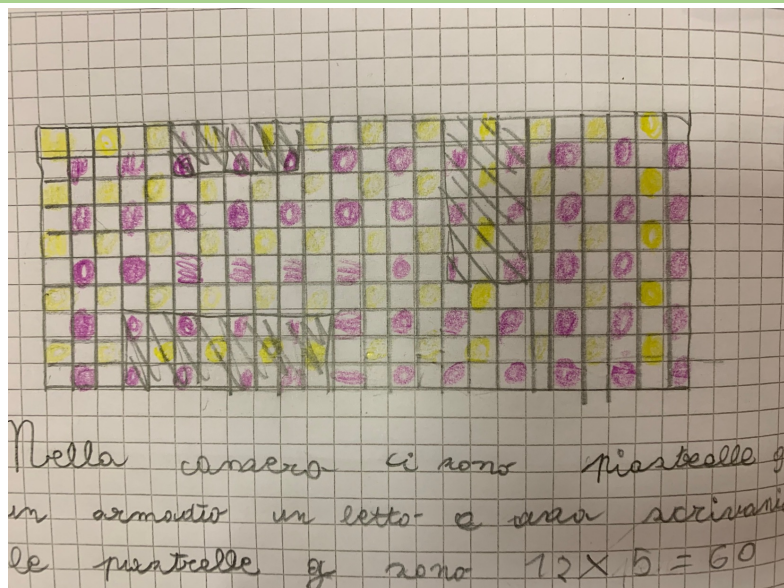 Nella camera ci sono piastrelle g
un armadio un letto e una scrivani
le piastrelle g sono 12 X 5 = 60